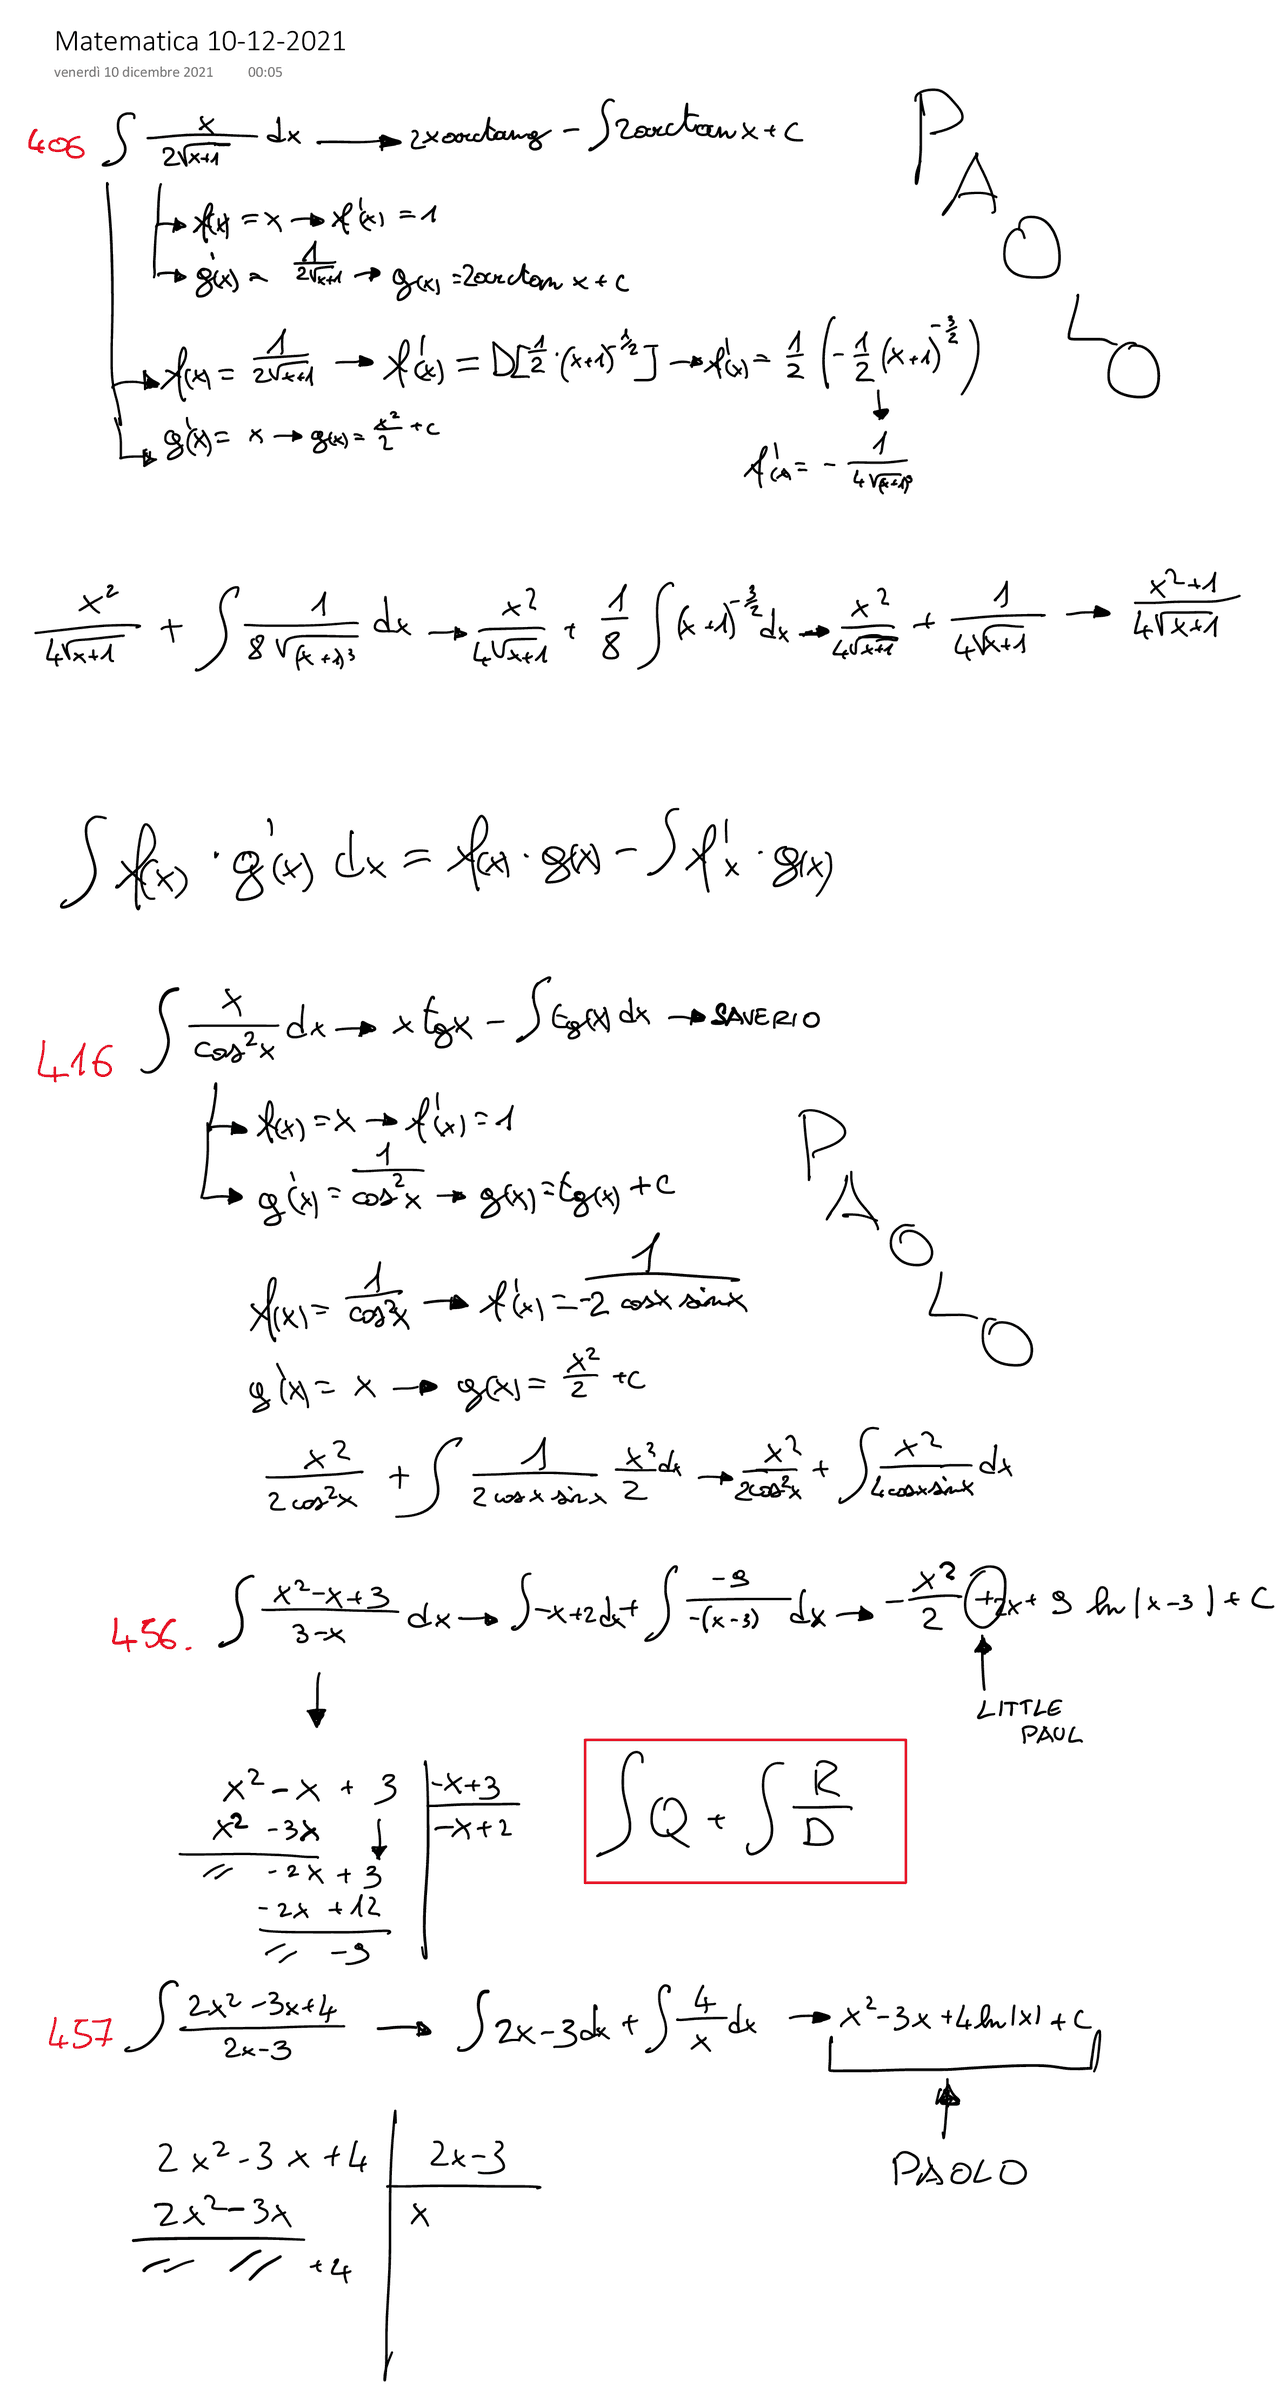 Matematica 10-12-2021
venerdì 10 dicembre 2021 00:05
406 ∫ x/(2√(x+1)) dx → 2x arctang - ∫ 2arctan x + c
→ f(x) = x → f'(x) = 1
→ g'(x) = 1/(2√(x+1)) → g(x) = 2arctan x + c
→ f(x) = 1/(2√(x+1)) → f'(x) = D[1/2 · (x+1)^(-1/2)] → f'(x) = 1/2 (-1/2 (x+1)^(-3/2))
→ g'(x) = x → g(x) = x²/2 + c
↓
f'(x) = - 1/(4√(x+1)³)
PAOLO
x²/(4√(x+1)) + ∫ 1/(8√(x+1)³) dx → x²/(4√(x+1)) + 1/8 ∫ (x+1)^(-3/2) dx → x²/(4√(x+1)) + 1/(4√(x+1)) → (x²+1)/(4√(x+1))
∫ f(x) · g'(x) dx = f(x) · g(x) - ∫ f'x · g(x)
416 ∫ x/cos²x dx → x tgx - ∫ tg(x) dx → SAVERIO
→ f(x) = x → f'(x) = 1
→ g'(x) = 1/cos²x → g(x) = tg(x) + c
f(x) = 1/cos²x → f'(x) = 1/(-2 cosx sinx)
g'(x) = x → g(x) = x²/2 + c
PAOLO
x²/(2cos²x) + ∫ 1/(2 cos x sin x) x²/2 dx → x²/(2cos²x) + ∫ x²/(4cosx sinx) dx
456. ∫ (x²-x+3)/(3-x) dx → ∫ -x+2 dx + ∫ -9/(-(x-3)) dx → - x²/2 + 2x + 9 ln|x-3| + C
↑
LITTLE
PAUL
↓
x² - x + 3 | -x+3
x² - 3x ↓ | -x+2
// -2x + 3
-2x + 12
// -9
∫ Q + ∫ R/D
457 ∫ (2x²-3x+4)/(2x-3) → ∫ 2x-3 dx + ∫ 4/x dx → x²-3x+4ln|x| + C
↑
PAOLO
2x²-3x+4 | 2x-3
2x²-3x | x
// // +4